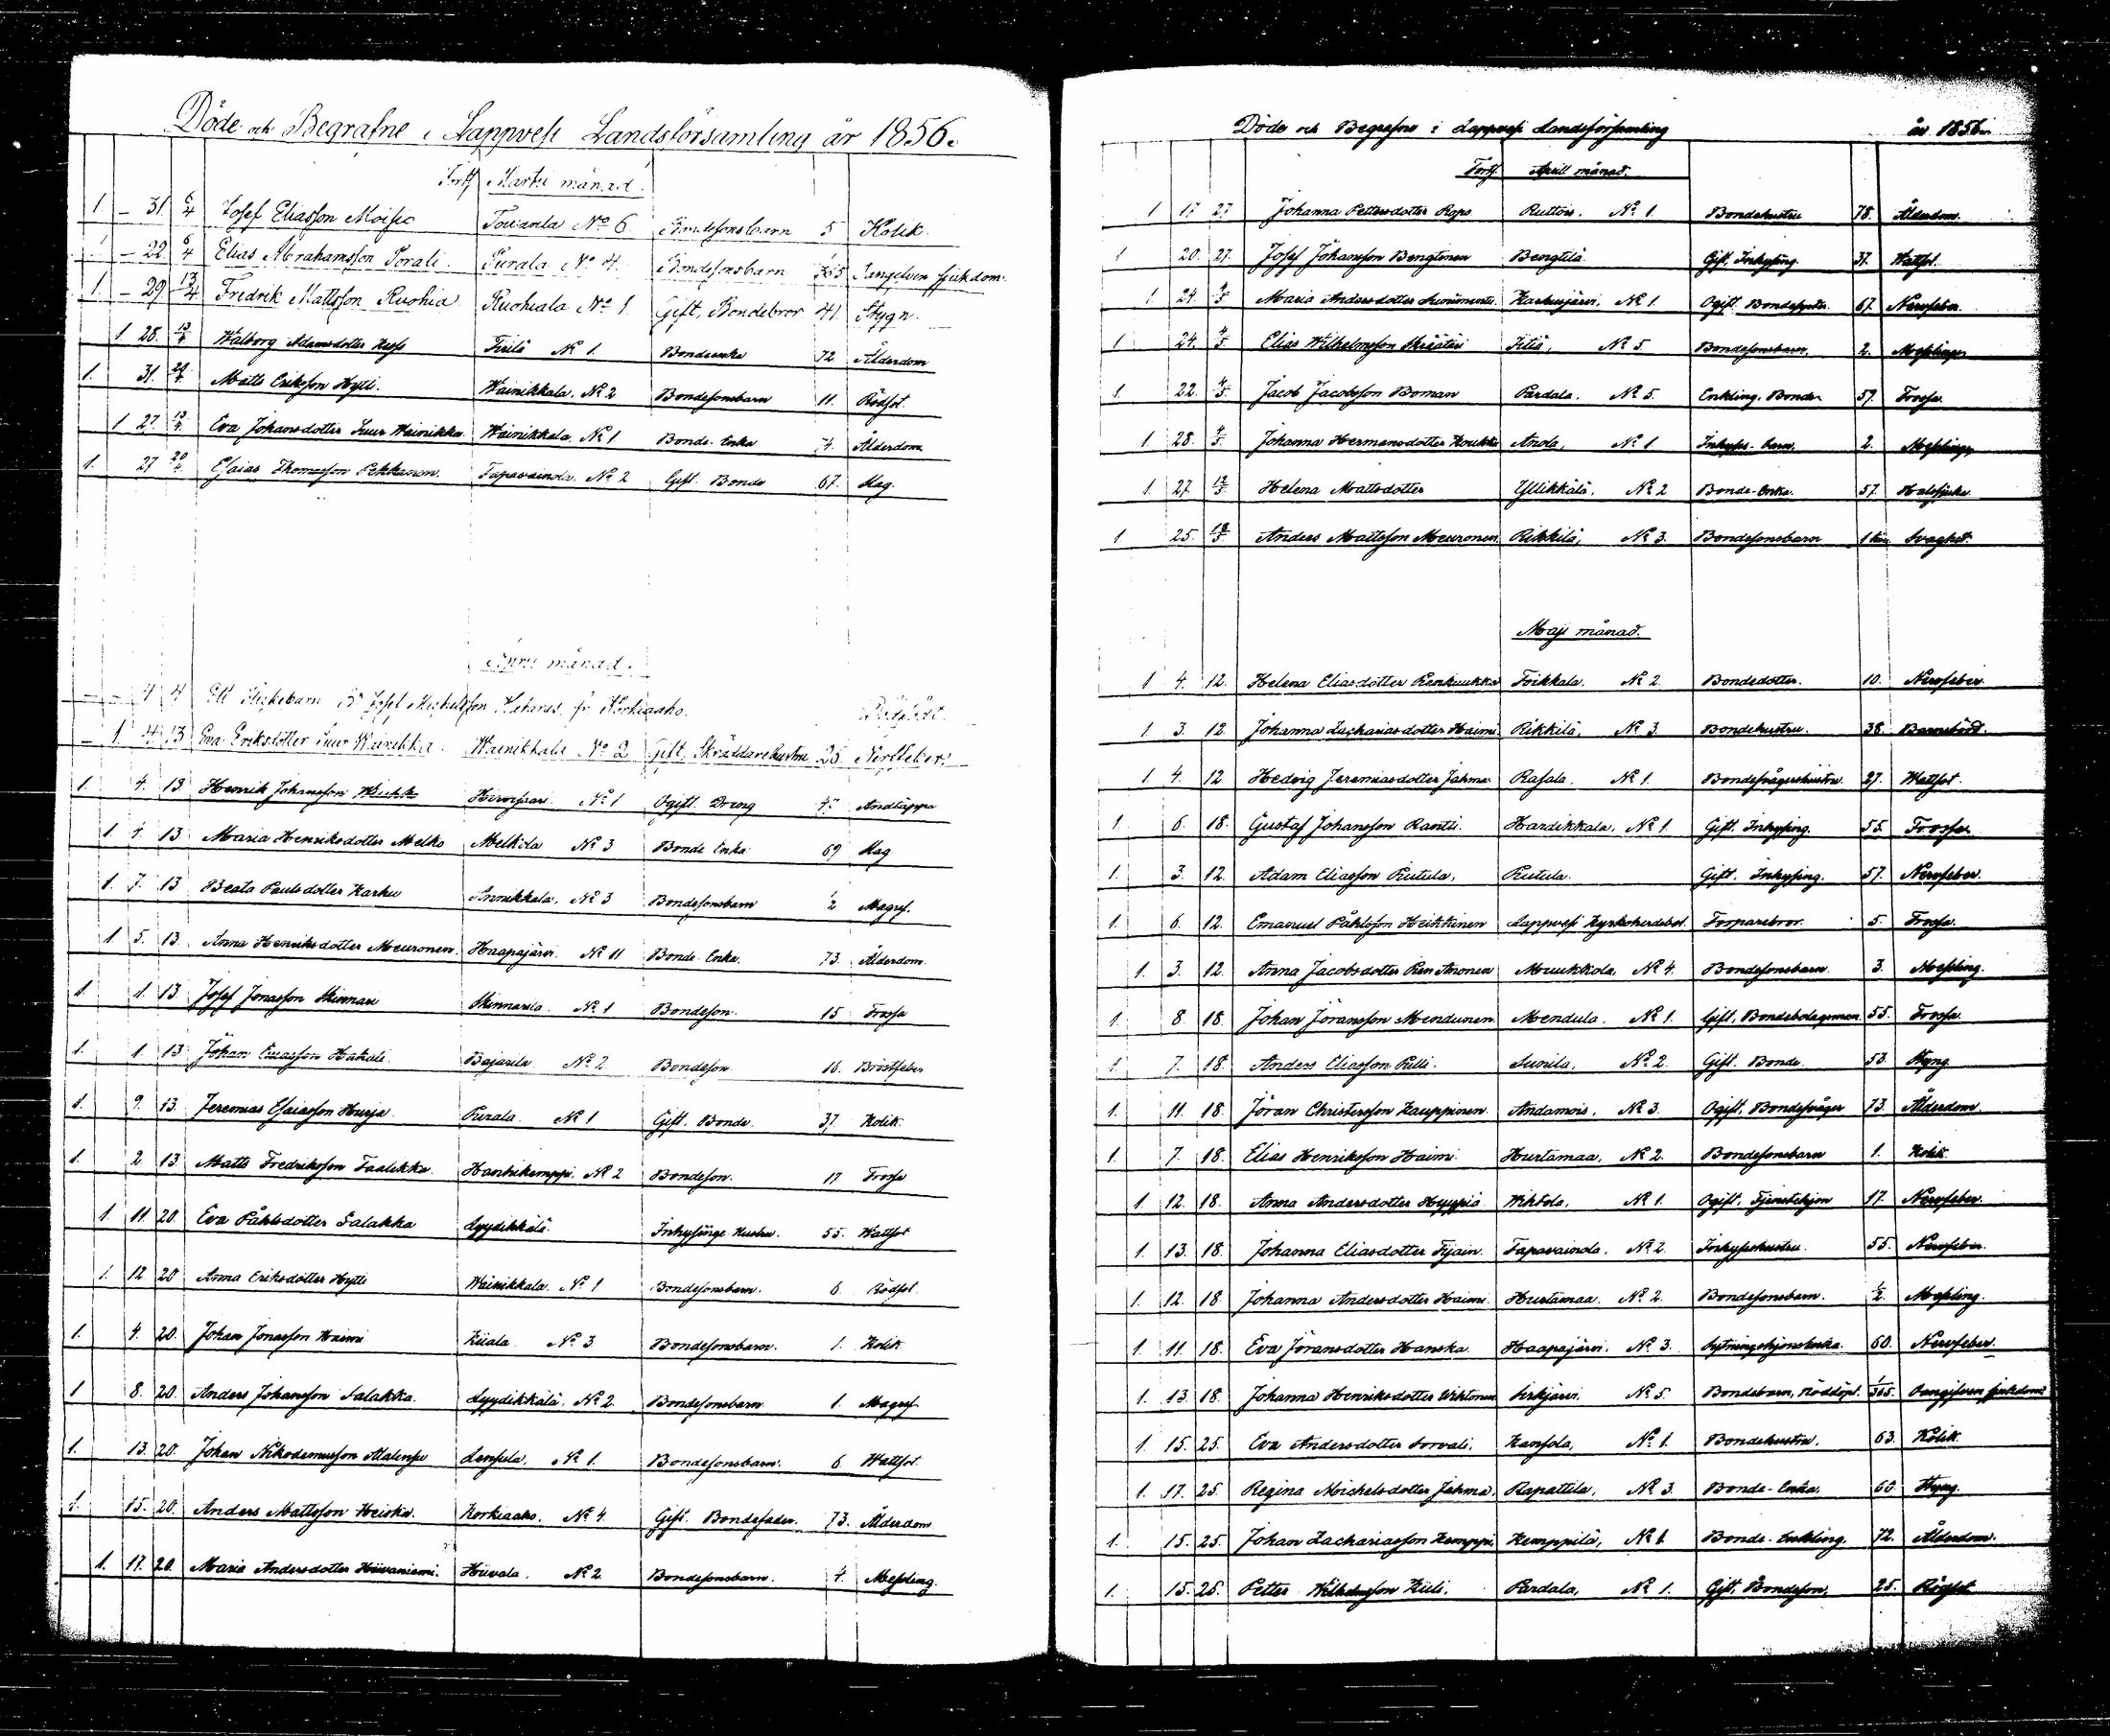 Döde och Begrafne i Lappvesi Landsförsamling år 1856.
Forts. Martii månad.
1. – 31. 6/4 Josef Eliasson Moisio Toivarila No 6. Bondesonsbarn 5 Kolik.
1. – 22. 6/4 Elias Abrahamsson Sorali. Purala No 4. Bondesonsbarn 1/365 Oangifven sjukdom.
1. – 29 13/4 Fredrik Mattsson Ruohia Ruohiala No 1. Gift, Bondebror 41 Stygn.
1 28. 13/4 Walborg Adamsdotter Hess Tirilä No 1. Bondeenka 72 Ålderdom
1. 31. 20/4 Matts Eriksson Hytti. Wainikkala. No 2 Bondesonsbarn 11. Rödsot.
1 27. 13/4 Eva Johansdotter Suur Wainikka Wainikkala. No 1 Bonde-Enka 74. Ålderdom
1. 27 20/4 Esaias Thomasson Pekkanen. Tapavainola. No 2 Gift. Bonde 67. Slag.
April månad.
– – 4 4 Ett Flickebarn Josef Michelsson fr Korkiaaho. Dödfödt.
– 1 4 13 Eva Eriksdotter Suur Wainikka. Wainikkala No 2 Gift, Skräddarehustru 26. Nerffeber.
1. 4. 13 Henrik Johansson Hirvisaari No 1 Ogift. Dreng 47 Andtäppa
1. 4. 13 Maria Henriksdotter Melko Melkola No 3 Bonde Enka 69 Slag
1. 7. 13 Beata Paulsdotter Karhu Annikkala. No 3 Bondesonsbarn 1/2 Magref.
1 5. 13. Anna Henriksdotter Meuronen. Haapajärvi. No 11 Bonde-Enka. 73. Ålderdom.
1 1. 13 Josef Jonasson Skinnari Skinnarila. No 1 Bondeson. 15 Frossa
1. 1. 13 Johan Bajarila No 2 Bondeson 16. Bröstfeber
1. 9. 13. Jeremias Esaiasson Hurja. Purala. No 1 Gift. Bonde. 37. Kolik.
1. 2. 13. Matts Fredriksson Taalikka Hanhikemppi. No 2 Bondeson. 17 Frossa
1. 11 20. Eva Påhlsdotter Salakka Lyydikkälä. Inhysinge Hustru. 55. Wattsot
1. 12 20 Anna Eriksdotter Hytti Wainikkala. No 1 Bondesonsbarn. 6. Rödsot.
1. 4. 20. Johan Jonasson Haimi Kiiala No 3 Bondesonsbarn. 1. Kolik
1 8. 20. Anders Johansson Salakka. Lyydikkälä. No 2. Bondesonsbarn 1. Magref
1. 13. 20. Johan Nikodemusson Alalempi Lempila. No 1. Bondesonsbarn. 6 Wattsot.
1. 15. 20. Anders Mattsson Heiska. Korkiaaho. No 4. Gift. Bondefader. 73. Ålderdom
1. 17. 20. Maria Andersdotter Hiivaniemi. Hiivala. No 2 Bondesonsbarn. 4. Messling.
Döde och Begrafne i Lappvesi Landsförsamling år 1856.
Forts. Aprill månad.
1 17 27 Johanna Pettersdotter Rapo Ruttois. No 1. Bondehustru 78. Ålderdom.
1 20. 27. Josef Johansson Bengtinen Bengtilä. Gift, Inhysing. 37. Wattsot.
1. 24. 4/5 Maria Andersdotter Karhusjärvi, No 1. Ogift Bondesyster. 67. Nervfeber.
1 24. 4/5 Elias Wilhelmsson Skräätäri Iitiä, No 5 Bondesonsbarn. 2. Messlinger
1. 22. 4/5. Jacob Jacobsson Boman Pardala. No 5. Enkling. Bonde 59. Frossa.
1. 28. 4/5 Johanna Hermansdotter Koukku Anola, No 1 Inhyses-barn. 2. Messlinger
1. 27. 12/5 Helena Mattsdotter Yllikkälä. No 2 Bonde-Enka. 57. Halssjuka.
1 25. 12/5. Anders Mattsson Meuronen. Rikkilä, No 3. Bondesonsbarn Svaghet.
Maji månad.
1 4. 12. Helena Eliasdotter Toikkala. No 2 Bondedotter. 10. Nervfeber
1. 3. 12. Johanna Zachariasdotter Haimi Rikkilä, No 3. Bondehustru. 38. Barnsbörd.
1. 4. 12 Hedvig Jeremiasdotter Jahma Rasala. No 1. Bondesvågershustru. 27. Wattsot.
1. 6. 18. Gustaf Johansson Rantti. Hardikkala, No 1. Gift. Inhysing. 55. Frossa
1. 3. 12. Adam Eliasson Rutula, Rutula. Gift. Inhysing. 57. Nervfeber.
1. 6. 12. Emanuel Påhlsson Heikkinen Lappvesi Kyrkoherdebol. Torparebror. 5. Frossa.
1. 3. 12. Anna Jacobsdotter Pien Anonen Muukkola. No 4. Bondesonsbarn. 3. Messling.
1. 8. 18. Johan Jöransson Mendunen Mendula. No 1. Gift, Bondebolagsman. 55. Frossa.
1. 7. 18. Anders Eliasson Pulli. Sunila, No 2. Gift. Bonde. 53. Styng.
1. 11. 18. Jöran Christersson Kauppinen. Andamois. No 3. Ogift. Bondesvåger 73. Ålderdom.
1. 7. 18. Elias Henriksson Haimi Hurtamaa, No 2. Bondesonsbarn 1. Kolik.
1. 12. 18. Anna Andersdotter Hyyppiä Wihtola, No 1. Ogift. Tjenstehjon 17. Nervfeber.
1. 13. 18. Johanna Eliasdotter Tijain. Tapavainola. No 2. Inhyseshustru. 55. Nervfeber.
1. 12. 18. Johanna Andersdotter Haimi. Hurtamaa. No 2. Bondesonsbarn. 1/2. Messling.
1. 11. 18. Eva Jöransdotter Hanska. Haapajärvi. No 3. Sytningshjonsenka. 60. Nervfeber.
1. 13. 18. Johanna Henriksdotter Wihtonen Sirkjärvi. No 5. Bondebarn, Nöddöpt. 1/365. Oangifven sjukdom.
1. 15. 25. Eva Andersdotter Sorvali, Kansola, No 1. Bondehustru. 63. Kolik.
1. 17. 25. Regina Michelsdotter Jahma, Rapattila, No 3. Bonde-Enka. 60. Styng.
1. 15. 25. Johan Zachariasson Kemppi, Kemppilä, No 1. Bonde-Enkling. 72. Ålderdom.
1. 15. 25. Petter Wilhelmsson Kiili, Pardala, No 1. Gift, Bondeson, 25. Rödsot